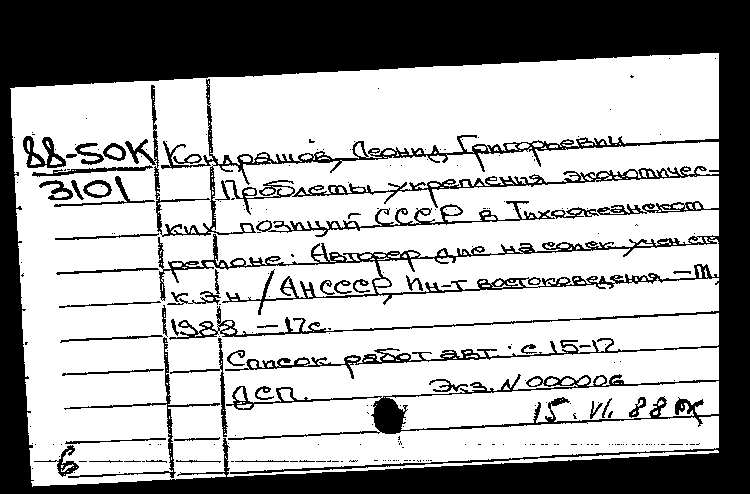 88-50К Кондрашов, Леонид Григорьевич
3101 Проблемы укрепления экономичес-
ких позиций СССР в Тихоокеанском
регионе: Автореф. дис на соиск. учен. сте
к.э.н. / АН СССР, Ин-т востоковедения. – М.,
1988. – 17с.
Список работ авт.: с. 15-17
ДСП. Экз. N 000006
15. VI. 88
6